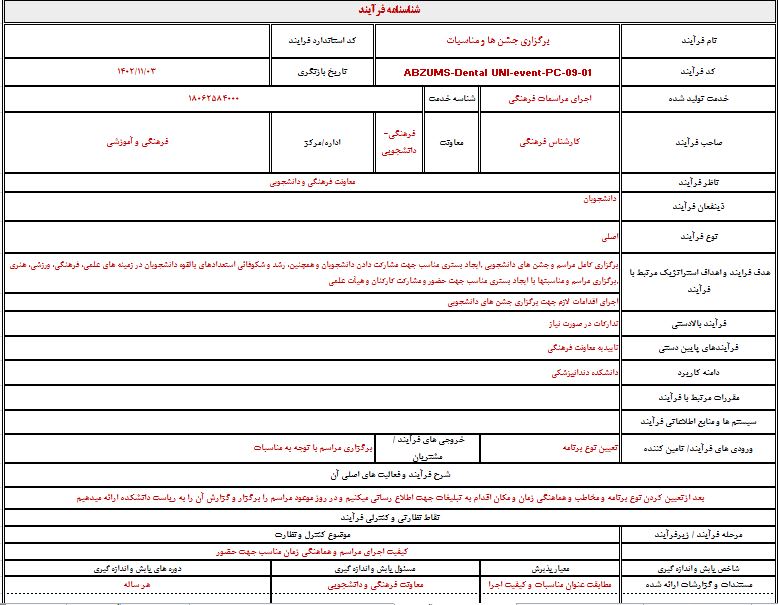 شناسنامه فرآیند
نام فرآیند
برگزاری جشن ها و مناسبات
کد استاندارد فرایند
کد فرآیند
ABZUMS-Dental UNI-event-PC-09-01
تاریخ بازنگری
۱۴۰۲/۱۱/۰۳
خدمت تولید شده
اجرای مراسمات فرهنگی
شناسه خدمت
۱۸۰۶۲۵۸۴۰۰۰
صاحب فرآیند
کارشناس فرهنگی
معاونت
فرهنگی-
دانشجویی
اداره/مرکز
فرهنگی و آموزشی
ناظر فرآیند
معاونت فرهنگی و دانشجویی
ذینفعان فرآیند
دانشجویان
نوع فرآیند
اصلی
هدف فرایند و اهداف استراتژیک مرتبط با
فرآیند
برگزاری کامل مراسم و جشن های دانشجویی ,ایجاد بستری مناسب جهت مشارکت دادن دانشجویان و همچنین، رشد و شکوفائی استعدادهای بالقوه دانشجویان در زمینه های علمی، فرهنگی، ورزشی، هنری
,برگزاری مراسم و مناسبتها با ایجاد بستری مناسب جهت حضور و مشارکت کارکنان و هیأت علمی
اجرای اقدامات لازم جهت برگزاری جشن های دانشجویی
فرآیند بالادستی
تدارکات در صورت نیاز
فرآیندهای پایین دستی
تاییدیه معاونت فرهنگی
دامنه کاربرد
دانشکده دندانپزشکی
مقررات مرتبط با فرآیند
سیستم ها و منابع اطلاعاتی فرآیند
ورودی های فرآیند/ تامین کننده
تعیین نوع برنامه
خروجی های فرآیند /
مشتریان
برگزاری مراسم با توجه به مناسبات
شرح فرآیند و فعالیت های اصلی آن
بعد ازتعیین کردن نوع برنامه و مخاطب و هماهنگی زمان و مکان اقدام به تبلیغات جهت اطلاع رسانی میکنیم و در روز موعود مراسم را برگزار و گزارش آن را به ریاست دانشکده ارائه میدهیم
نقاط نظارتی و کنترلی فرآیند
مرحله فرآیند / زیرفرآیند
موضوع کنترل و نظارت
کیفیت اجرای مراسم و هماهنگی زمان مناسب جهت حضور
شاخص پایش و اندازه گیری
معیار پذیرش
مسئول پایش و اندازه گیری
دوره های پایش و اندازه گیری
مستندات و گزارشات ارائه شده
مطابقت عنوان مناسبات و کیفیت اجرا
معاونت فرهنگی و دانشجویی
هر ساله